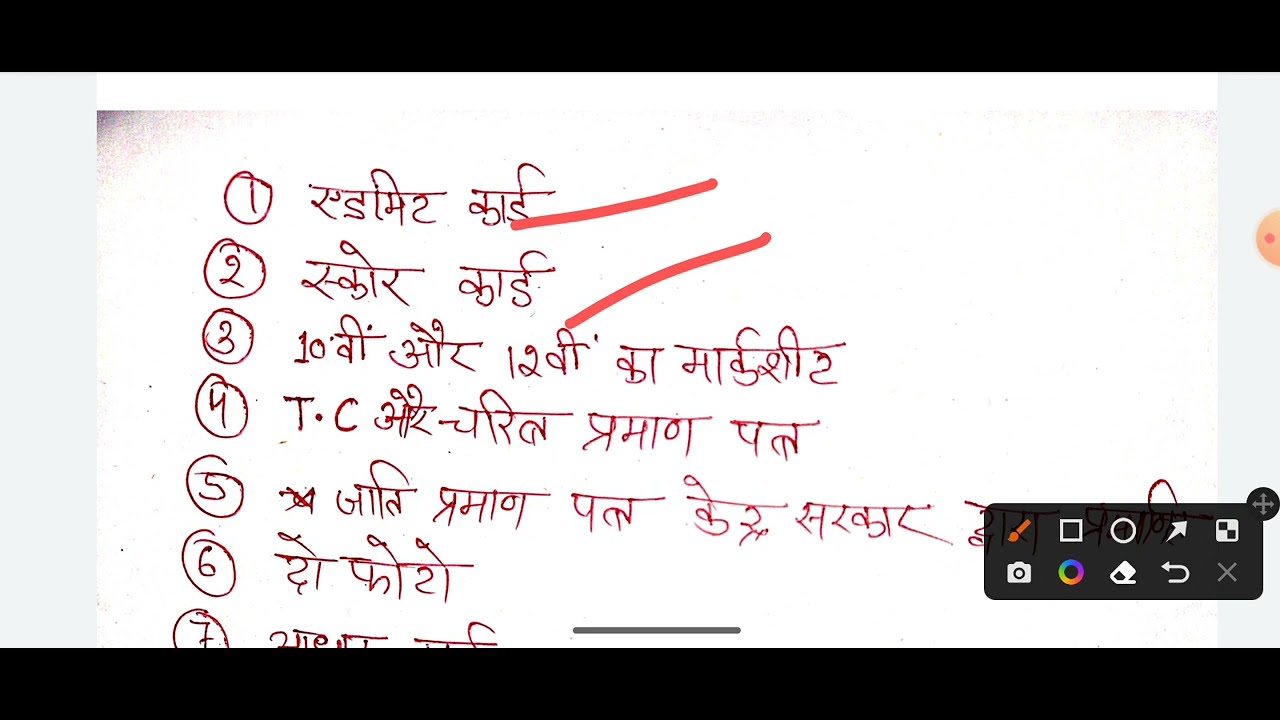 ① एडमिट कार्ड
② स्कोर कार्ड
③ 10वीं और 12वीं का मार्कशीट
④ T.C और चरित्र प्रमाण पत्र
⑤ जाति प्रमाण पत्र केन्द्र सरकार द्वारा
⑥ दो फोटो
⑦